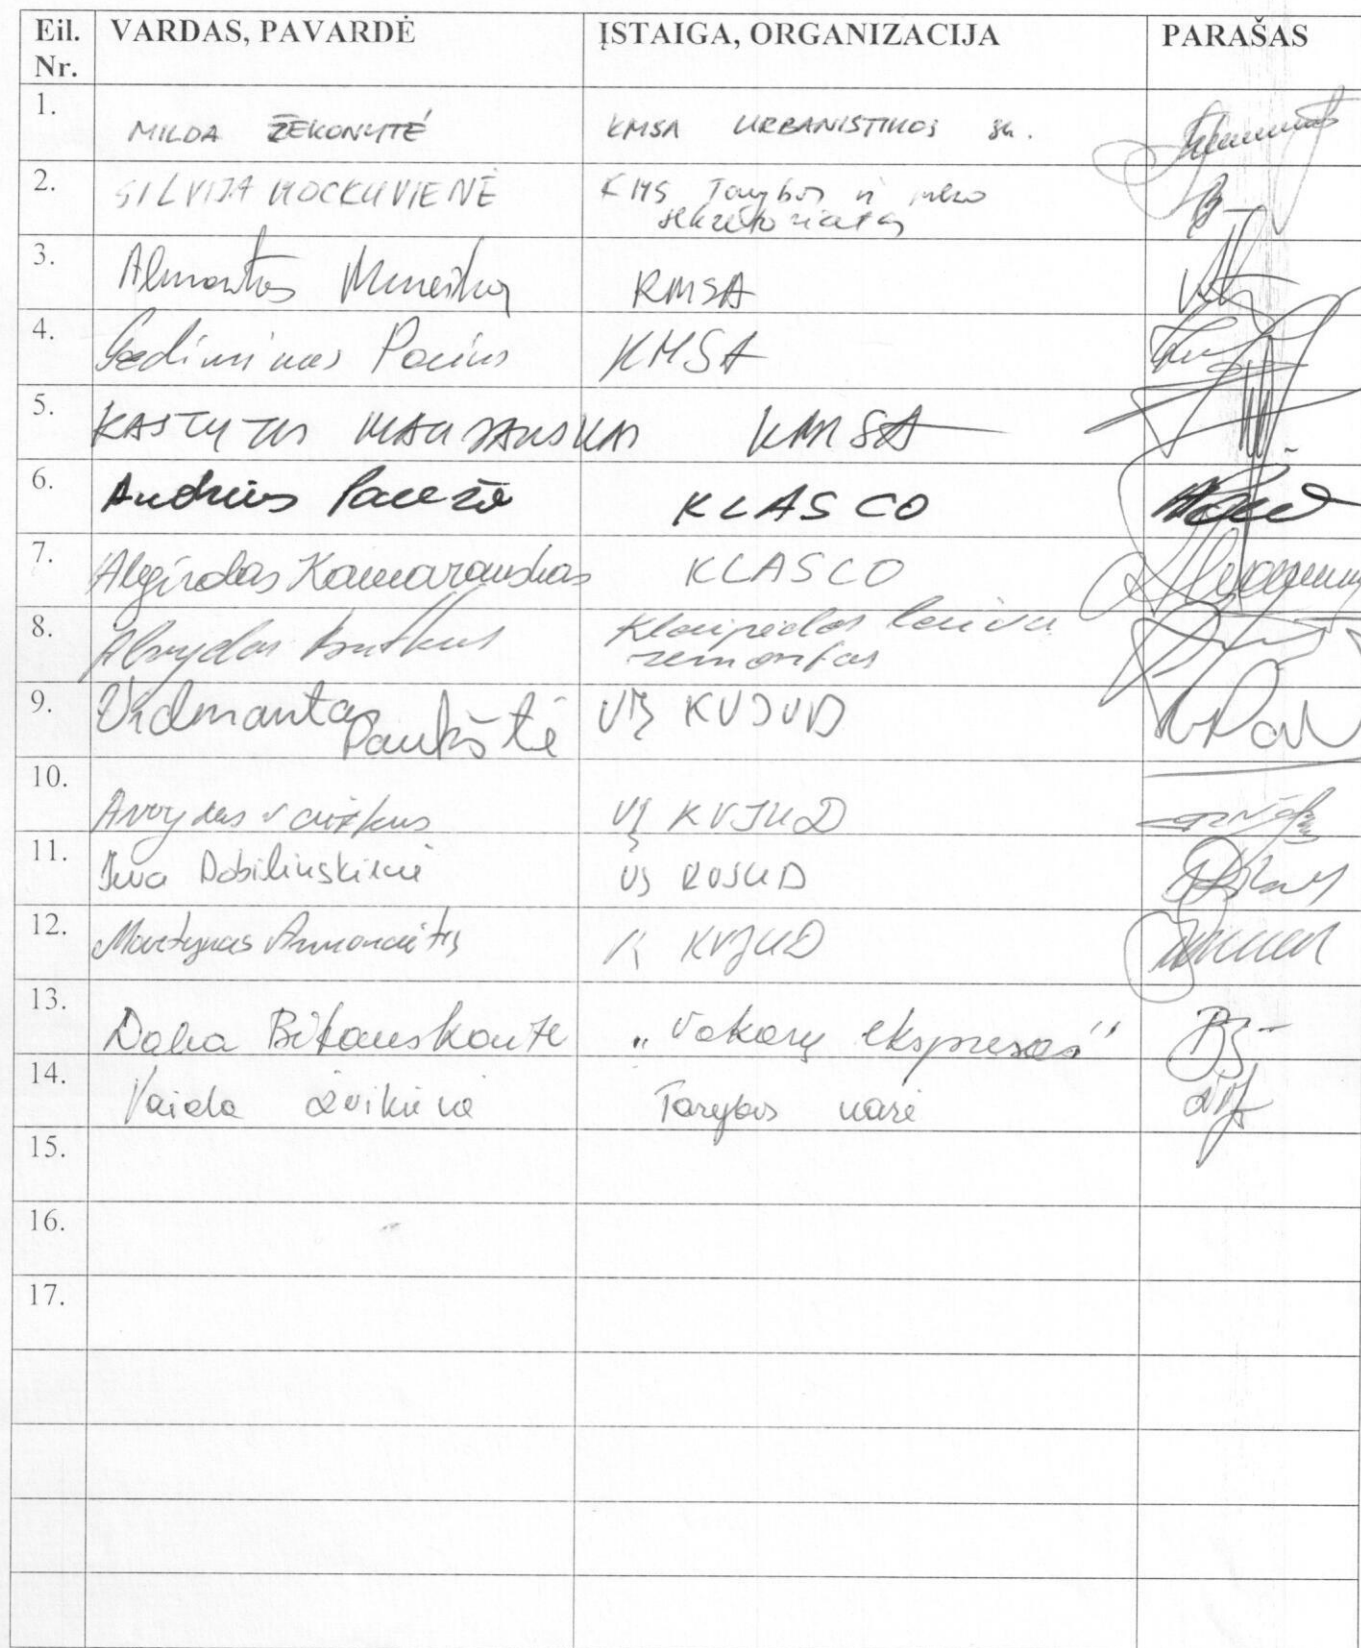 Eil. Nr. VARDAS, PAVARDĖ ĮSTAIGA, ORGANIZACIJA PARAŠAS
1. MILDA ŽEKONYTĖ KMSA URBANISTIKOS sk.
2. SILVIJA MOCKUVIENĖ KMS Tarybos ir mero sekretoriatas
3. Almantas Mureika KMSA
4. Gediminas Pocius KMSA
5. KASTYTIS KMSA
6. Andrius KLASCO
7. Algirdas Kamarauskas KLASCO
8. Alvydas Butkus Klaipėdos laivų remontas
9. Vidmantas Paukštė VĮ KVJUD
10. Arvydas Vaitkus VĮ KVJUD
11. Dobilinskienė VĮ KVJUD
12. Martynas Armonaitis KVJUD
13. Dalia Bikauskaitė „Vakarų ekspresas"
14. Vaida Tarybos narė
15.
16.
17.